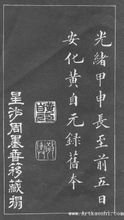 光緒甲申長至前五日
安化黃自元錄舊本
星沙周墨香移藏搨
Artkaoshi.com